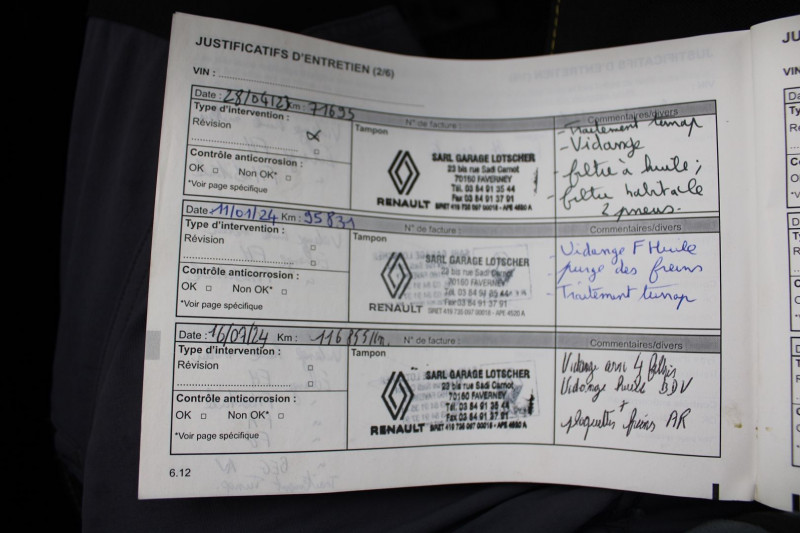 JUSTIFICATIFS D'ENTRETIEN (2/6)
VIN :
Date : 28/04/23 Km : 71695
Type d'intervention :
Révision
Contrôle anticorrosion :
OK Non OK*
*Voir page spécifique
Tampon
N° de facture :
RENAULT
SARL GARAGE LOTSCHER
23 bis rue Sadi Carnot
70160 FAVERNEY
Tél. 03 84 91 35 44
Fax 03 84 91 37 91
SIRET 419 735 097 00018 - APE 4520 A
Commentaires/divers
- Traitement tunap
- Vidange
- filtre à huile ;
- filtre habitacle
2 pneus.
Date : 11/01/24 Km : 95831
Type d'intervention :
Révision
Contrôle anticorrosion :
OK Non OK*
*Voir page spécifique
Tampon
N° de facture :
RENAULT
SARL GARAGE LOTSCHER
23 bis rue Sadi Carnot
70160 FAVERNEY
Tél. 03 84 91 35 44
Fax 03 84 91 37 91
SIRET 419 735 097 00018 - APE 4520 A
Commentaires/divers
- Vidange F Huile
- purge des freins
- Traitement tunap
Date : 16/07/24 Km : 116855 Km.
Type d'intervention :
Révision
Contrôle anticorrosion :
OK Non OK*
*Voir page spécifique
Tampon
N° de facture :
RENAULT
SARL GARAGE LOTSCHER
23 bis rue Sadi Carnot
70160 FAVERNEY
Tél. 03 84 91 35 44
Fax 03 84 91 37 91
SIRET 419 735 097 00018 - APE 4520 A
Commentaires/divers
Vidange avec 4 filtres
Vidange huile BDV
+
plaquettes freins AR
6.12